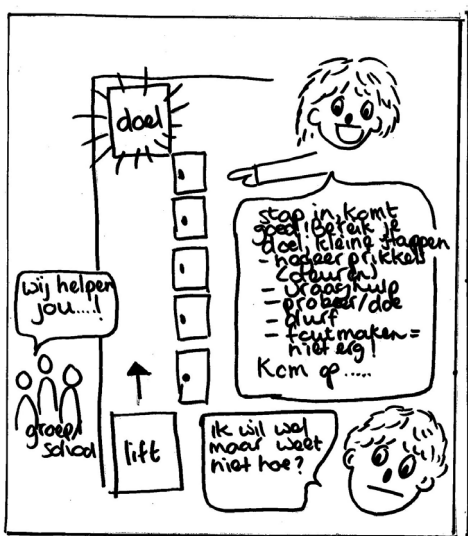 doel
stap in, komt
goed! Bereik je
doel, kleine stappen
- noteer prikkels
(deuren)
- vraag hulp
- probeer/doe
- durf
- foutmaken =
niet erg!
Kom op.....
wij helpen
jou.....!
groep/
school
lift
Ik wil wel
maar weet
niet hoe?